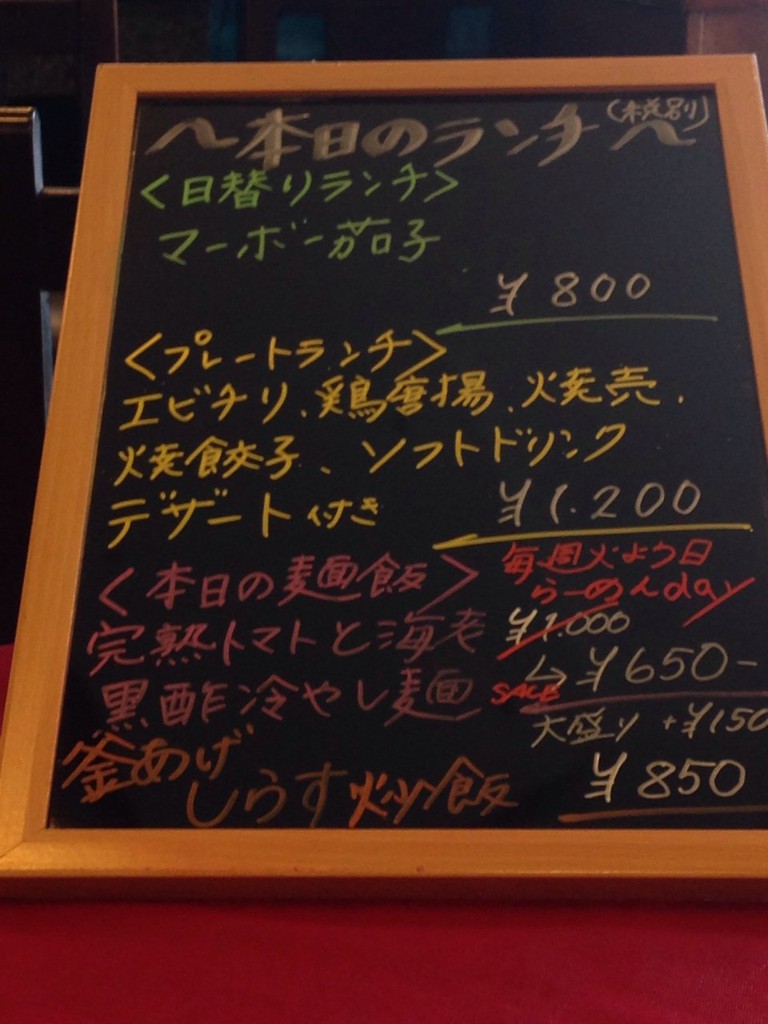 ～本日のランチ～(税別)
<日替りランチ>
マーボー茄子
¥800
<プレートランチ>
エビチリ、鶏唐揚、焼売、
焼餃子、ソフトドリンク
デザート付き ¥1.200
<本日の麺飯> 毎週火よう日
らーめんday
完熟トマトと海老 ¥1.000
↳ ¥650-
黒酢冷やし麺 SALE
大盛り +¥150
釜あげ
しらす炒飯 ¥850